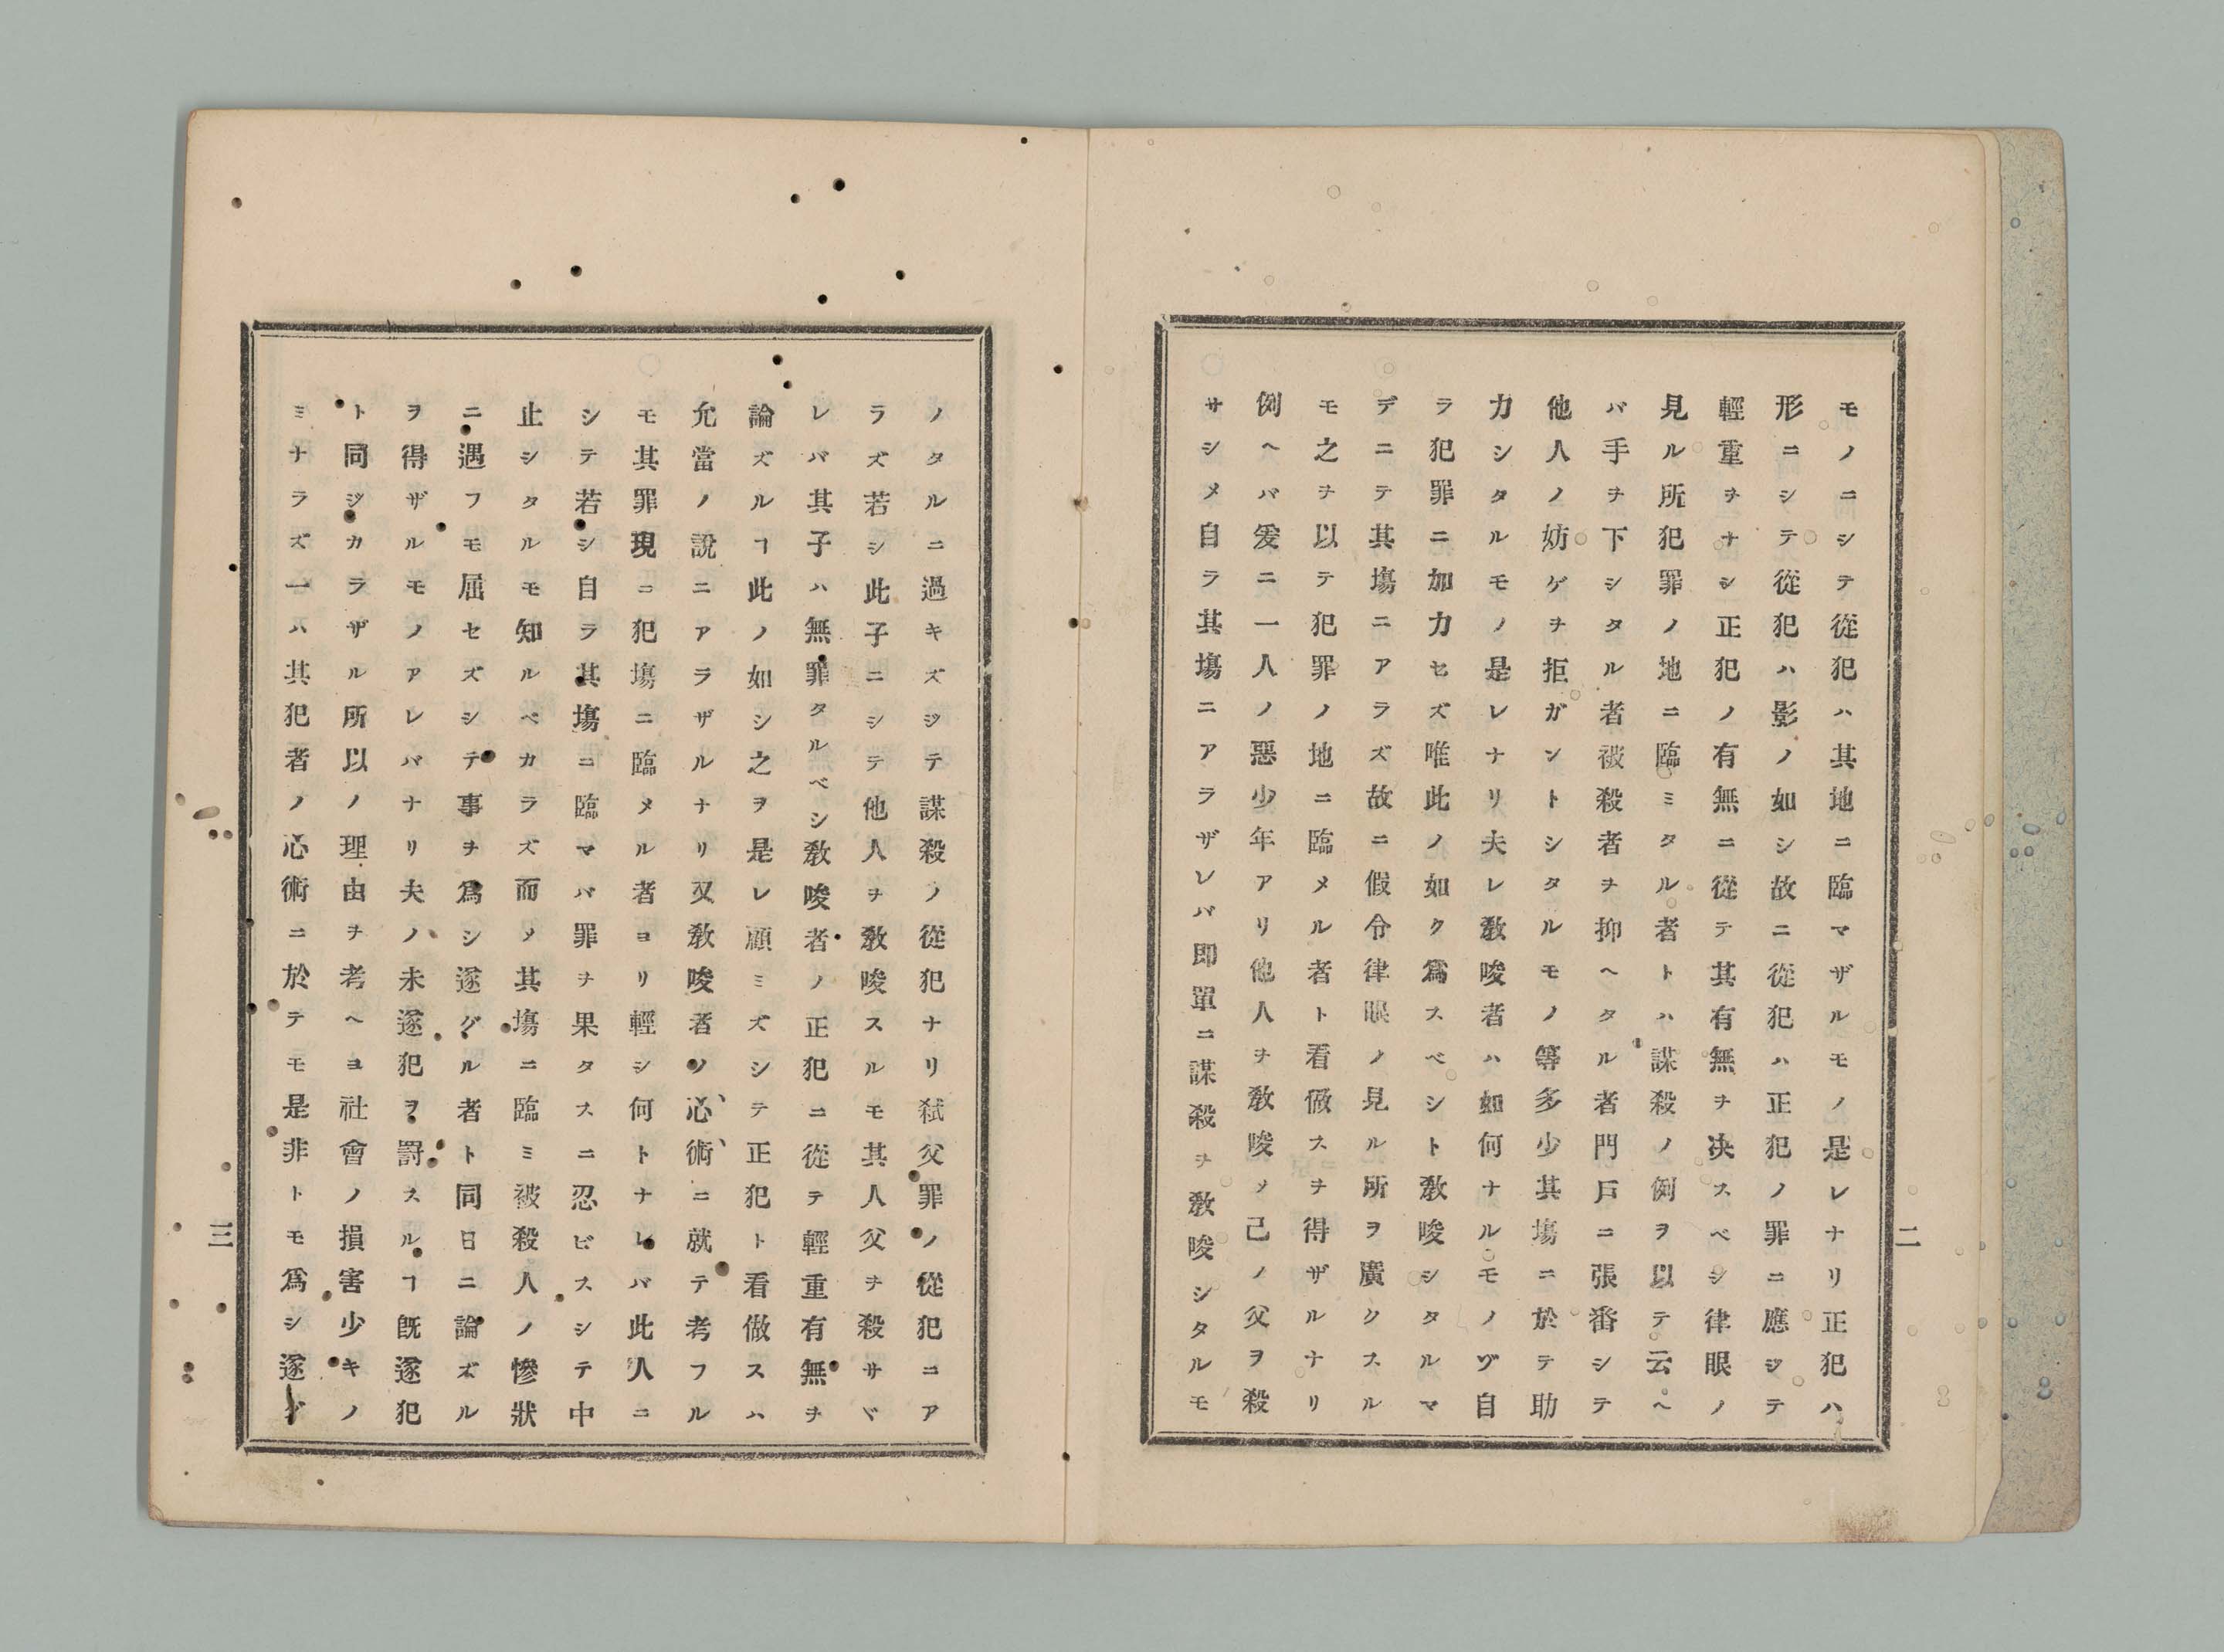 二
モノニシテ從犯ハ其地ニ臨マザルモノ是レナリ正犯ハ
形ニシテ從犯ハ影ノ如シ故ニ從犯ハ正犯ノ罪ニ應ジテ
輕重ヲナシ正犯ノ有無ニ從テ其有無ヲ决スベシ律眼ノ
見ル所犯罪ノ地ニ臨ミタル者トハ謀殺ノ例ヲ以テ云ヘ
バ手ヲ下シタル者被殺者ヲ抑ヘタル者門戸ニ張番シテ
他人ノ妨ゲヲ拒ガントシタルモノ等多少其塲ニ於テ助
力シタルモノ是レナリ夫レ敎唆者ハ如何ナルモノゾ自
ラ犯罪ニ加力セズ唯此ノ如ク爲スベシト敎唆シタルマ
デニテ其塲ニアラズ故ニ假令律眼ノ見ル所ヲ廣クスル
モ之ヲ以テ犯罪ノ地ニ臨メル者ト看做スヲ得ザルナリ
例ヘバ爰ニ一人ノ惡少年アリ他人ヲ敎唆メ己ノ父ヲ殺
サシメ自ラ其塲ニアラザレバ即單ニ謀殺ヲ敎唆シタルモ
ノタルニ過キズシテ謀殺ノ從犯ナリ弑父罪ノ從犯ニア
ラズ若シ此子ニシテ他人ヲ敎唆スルモ其人父ヲ殺サヾ
レバ其子ハ無罪タルベシ敎唆者ノ正犯ニ從テ輕重有無ヲ
論ズルヿ此ノ如シ之ヲ是レ顧ミズシテ正犯ト看做スハ
允當ノ說ニアラザルナリ又敎唆者ノ心術ニ就テ考フル
モ其罪現ニ犯塲ニ臨メル者ヨリ輕シ何トナレバ此人ニ
シテ若シ自ラ其塲ニ臨マバ罪ヲ果タスニ忍ビスシテ中
止シタルモ知ルベカラズ而メ其塲ニ臨ミ被殺人ノ慘狀
ニ遇フモ屈セズシテ事ヲ爲シ遂グル者ト同日ニ論ズル
ヲ得ザルモノアレバナリ夫ノ未遂犯ヲ罰スルヿ既遂犯
ト同ジカラザル所以ノ理由ヲ考ヘヨ社會ノ損害少キノ
ミナラズ一ハ其犯者ノ心術ニ於テモ是非トモ爲シ遂グ
三